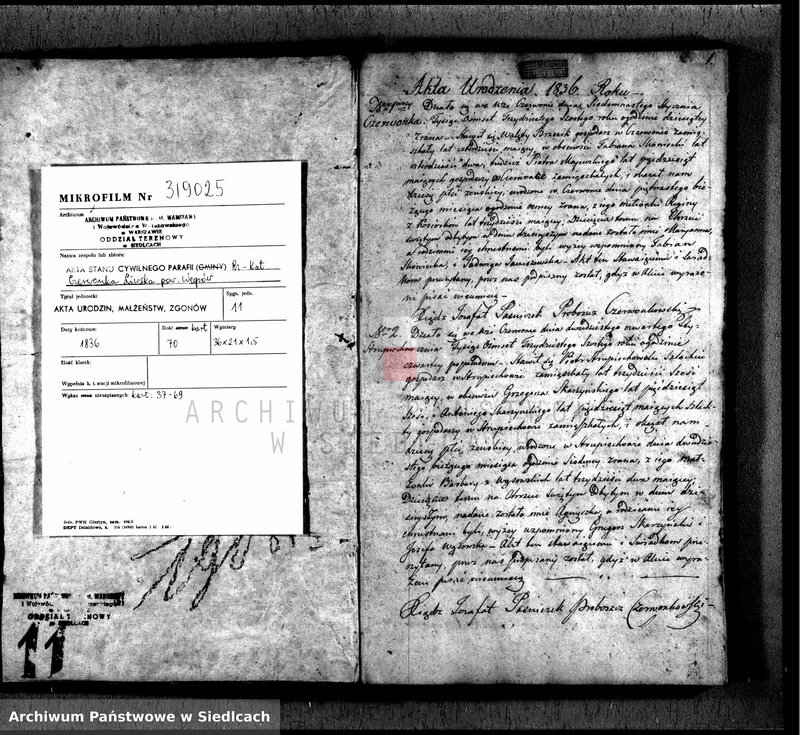 MIKROFILM Nr 319025
Archiwum
ARCHIWUM PAŃSTWOWE m. st. WARSZAWY
i Województwa Warszawskiego
w WARSZAWIE
ODDZIAŁ TERENOWY
w SIEDLCACH
Nazwa zespołu lub zbioru:
AKTA STANU CYWILNEGO PARAFII (GMINY) Rz-Kat
Czerwonka Liwska pow. Węgrów
Tytuł jednostki:
AKTA URODZIN, MAŁŻEŃSTW, ZGONÓW
Sygn. jedn.
11
Daty końcowe:
1836
Ilość stron kart
70
Wymiary
36x21x1,5
Ilość klatek:
Wypełnia k. t. stacji mikrofilmowej
Wykaz stron niezapisanych: kart: 37-69
ODDZIAŁ TERENOWY
w SIEDLCACH
11
1
Akta Urodzenia 1836 Roku
Czerwonka
Działo się we Wsi Czerwonce dnia Siedemnastego Stycznia
Tysiąc Ośmset Trzydziestego Szóstego roku o godzinie dziesiątej
zrana Stawił się Walenty gospodarz w Czerwonce zamie-
szkały lat czterdzieści mający, w obecności Fabiana Słonickiego lat
czterdzieści dwa, tudzież Piotra Majewskiego lat pięćdziesiąt
mających gospodarzy w Czerwonce zamieszkałych, i okazał nam
dziecię płci żeńskiej, urodzone w Czerwonce dnia piętnastego bie-
żącego miesiąca o godzinie ósmej zrana, z jego małżonki Reginy
lat trzydzieści mającej, Dziecięciu temu na Chrzcie
świętym odbytym w dniu dzisiejszym nadane zostało imię
a rodzicami chrzestnemi byli wyżej wspomniony Fabian
Słonicki i Jadwiga Akt ten stawającemu i świad-
kom przeczytany, przez nas podpisany został, gdyż w Akcie wyraże-
ni pisać nieumieją
Xiądz Jozafat Paśniczek Proboszcz Czerwonkowski
No 2.
Działo się we Wsi Czerwonce dnia dwudziestego czwartego Sty-
cznia Tysiąc Ośmset Trzydziestego Szóstego roku o godzinie
czwartej popołudniu Stawił się Piotr Szlachcic
gospodarz w zamieszkały lat trzydzieści sześć
mający, w obecności Grzegorza Skarżyńskiego lat pięćdziesiąt
sześć i Antoniego Skarżyńskiego lat pięćdziesiąt mających Szlach-
ty gospodarzy w zamieszkałych, i okazał nam
dziecię płci żeńskiej, urodzone w dnia dwudzie-
stego bieżącego miesiąca o godzinie siódmej zrana, z jego Mał-
żonki Barbary z Wąsowskich lat trzydzieści dwa mającej;
Dziecięciu temu na Chrzcie świętym odbytym w dniu dzi-
siejszym, nadane zostało imię Agnieszka, a rodzicami jej
chrzestnemi byli, wyżej wspomniony Grzegorz Skarżyński i
Józefa Wąsowska Akt ten stawającemu i świadkom prze-
czytany, przez nas podpisany został, gdyż w Akcie wyra-
żeni pisać nieumieją
Xiądz Jozafat Paśniczek Proboszcz Czerwonkowski
ARCHIWUM
W SIEDLCACH
Archiwum Państwowe w Siedlcach